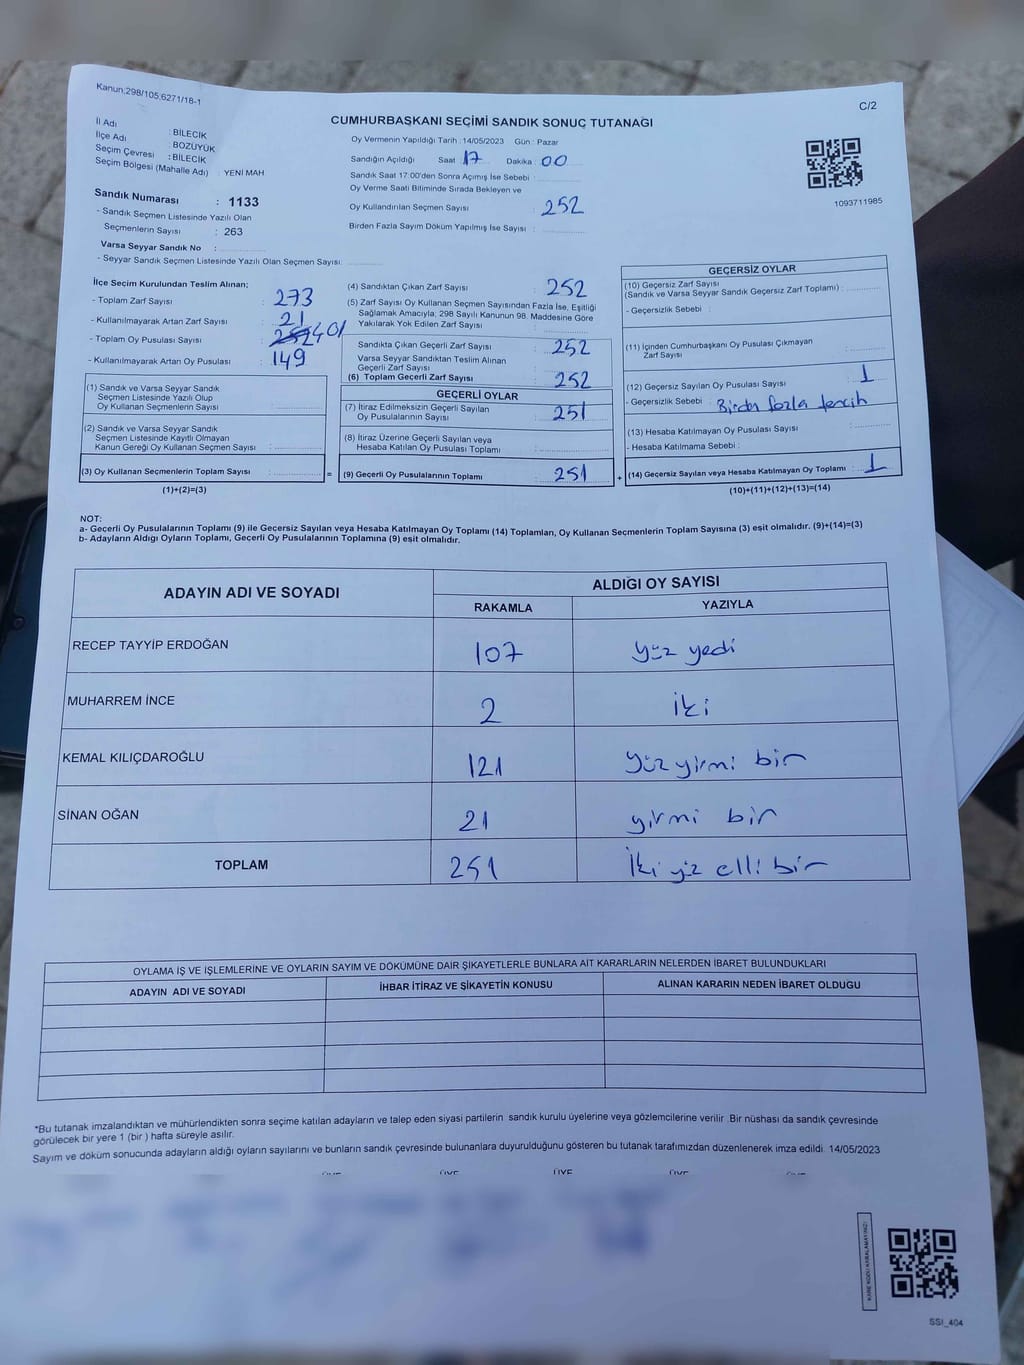 Kanun:298/105;6271/18-1
C/2
CUMHURBAŞKANI SEÇİMİ SANDIK SONUÇ TUTANAĞI
İl Adı : BİLECİK
İlçe Adı : BOZÜYÜK
Seçim Çevresi : BİLECİK
Seçim Bölgesi (Mahalle Adı) : YENİ MAH
Sandık Numarası : 1133
- Sandık Seçmen Listesinde Yazılı Olan
Seçmenlerin Sayısı : 263
Varsa Seyyar Sandık No :
- Seyyar Sandık Seçmen Listesinde Yazılı Olan Seçmen Sayısı:
Oy Vermenin Yapıldığı Tarih : 14/05/2023 Gün : Pazar
Sandığın Açıldığı Saat : 17 Dakika : 00
Sandık Saat 17:00'den Sonra Açımış İse Sebebi :
Oy Verme Saati Bitiminde Sırada Bekleyen ve
Oy Kullandırılan Seçmen Sayısı : 252
Birden Fazla Sayım Döküm Yapılmış İse Sayısı :
1093711985
İlçe Seçim Kurulundan Teslim Alınan;
- Toplam Zarf Sayısı : 273
- Kullanılmayarak Artan Zarf Sayısı : 21
- Toplam Oy Pusulası Sayısı : 401
- Kullanılmayarak Artan Oy Pusulası : 149
(1) Sandık ve Varsa Seyyar Sandık
Seçmen Listesinde Yazılı Olup
Oy Kullanan Seçmenlerin Sayısı :
(2) Sandık ve Varsa Seyyar Sandık
Seçmen Listesinde Kayıtlı Olmayan
Kanun Gereği Oy Kullanan Seçmen Sayısı :
(3) Oy Kullanan Seçmenlerin Toplam Sayısı :
(1)+(2)=(3)
(4) Sandıktan Çıkan Zarf Sayısı : 252
(5) Zarf Sayısı Oy Kullanan Seçmen Sayısından Fazla İse, Eşitliği
Sağlamak Amacıyla; 298 Sayılı Kanunun 98. Maddesine Göre
Yakılarak Yok Edilen Zarf Sayısı :
Sandıkta Çıkan Geçerli Zarf Sayısı : 252
Varsa Seyyar Sandıktan Teslim Alınan
Geçerli Zarf Sayısı :
(6) Toplam Geçerli Zarf Sayısı : 252
GEÇERLİ OYLAR
(7) İtiraz Edilmeksizin Geçerli Sayılan
Oy Pusulalarının Sayısı : 251
(8) İtiraz Üzerine Geçerli Sayılan veya
Hesaba Katılan Oy Pusulaları Toplamı :
= (9) Geçerli Oy Pusulalarının Toplamı : 251
GEÇERSİZ OYLAR
(10) Geçersiz Zarf Sayısı
(Sandık ve Varsa Seyyar Sandık Geçersiz Zarf Toplamı) :
- Geçersizlik Sebebi :
(11) İçinden Cumhurbaşkanı Oy Pusulası Çıkmayan
Zarf Sayısı :
(12) Geçersiz Sayılan Oy Pusulası Sayısı : 1
- Geçersizlik Sebebi : Birden fazla tercih
(13) Hesaba Katılmayan Oy Pusulası Sayısı :
- Hesaba Katılmama Sebebi :
+ (14) Geçersiz Sayılan veya Hesaba Katılmayan Oy Toplamı : 1
(10)+(11)+(12)+(13)=(14)
NOT:
a- Geçerli Oy Pusulalarının Toplamı (9) ile Geçersiz Sayılan veya Hesaba Katılmayan Oy Toplamı (14) Toplamları, Oy Kullanan Seçmenlerin Toplam Sayısına (3) eşit olmalıdır. (9)+(14)=(3)
b- Adayların Aldığı Oyların Toplamı, Geçerli Oy Pusulalarının Toplamına (9) eşit olmalıdır.
ADAYIN ADI VE SOYADI
ALDIĞI OY SAYISI
RAKAMLA YAZIYLA
RECEP TAYYİP ERDOĞAN 107 yüz yedi
MUHARREM İNCE 2 iki
KEMAL KILIÇDAROĞLU 121 yüz yirmi bir
SİNAN OĞAN 21 yirmi bir
TOPLAM 251 İki yüz elli bir
OYLAMA İŞ VE İŞLEMLERİNE VE OYLARIN SAYIM VE DÖKÜMÜNE DAİR ŞİKAYETLERLE BUNLARA AİT KARARLARIN NELERDEN İBARET BULUNDUKLARI
ADAYIN ADI VE SOYADI İHBAR İTİRAZ VE ŞİKAYETİN KONUSU ALINAN KARARIN NEDEN İBARET OLDUĞU
*Bu tutanak imzalandıktan ve mühürlendikten sonra seçime katılan adayların ve talep eden siyasi partilerin sandık kurulu üyelerine veya gözlemcilerine verilir. Bir nüshası da sandık çevresinde
görülecek bir yere 1 (bir ) hafta süreyle asılır.
Sayım ve döküm sonucunda adayların aldığı oyların sayılarını ve bunların sandık çevresinde bulunanlara duyurulduğunu gösteren bu tutanak tarafımızdan düzenlenerek imza edildi. 14/05/2023
ÜYE ÜYE ÜYE ÜYE
KARE KODU KARALAMAYINIZ!
SSI_404